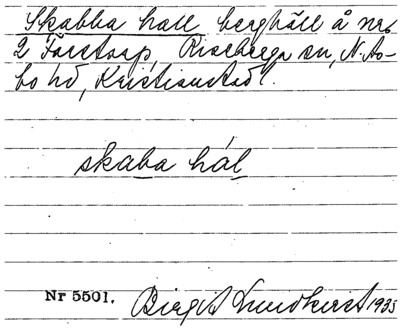 Skabba hall berghäll å nr.
2 Färstorp, Riseberga sn, N. Ås-
bo hd, Kristianstad l.
skaba hál
Nr 5501. Birgit Lundkvist 1935